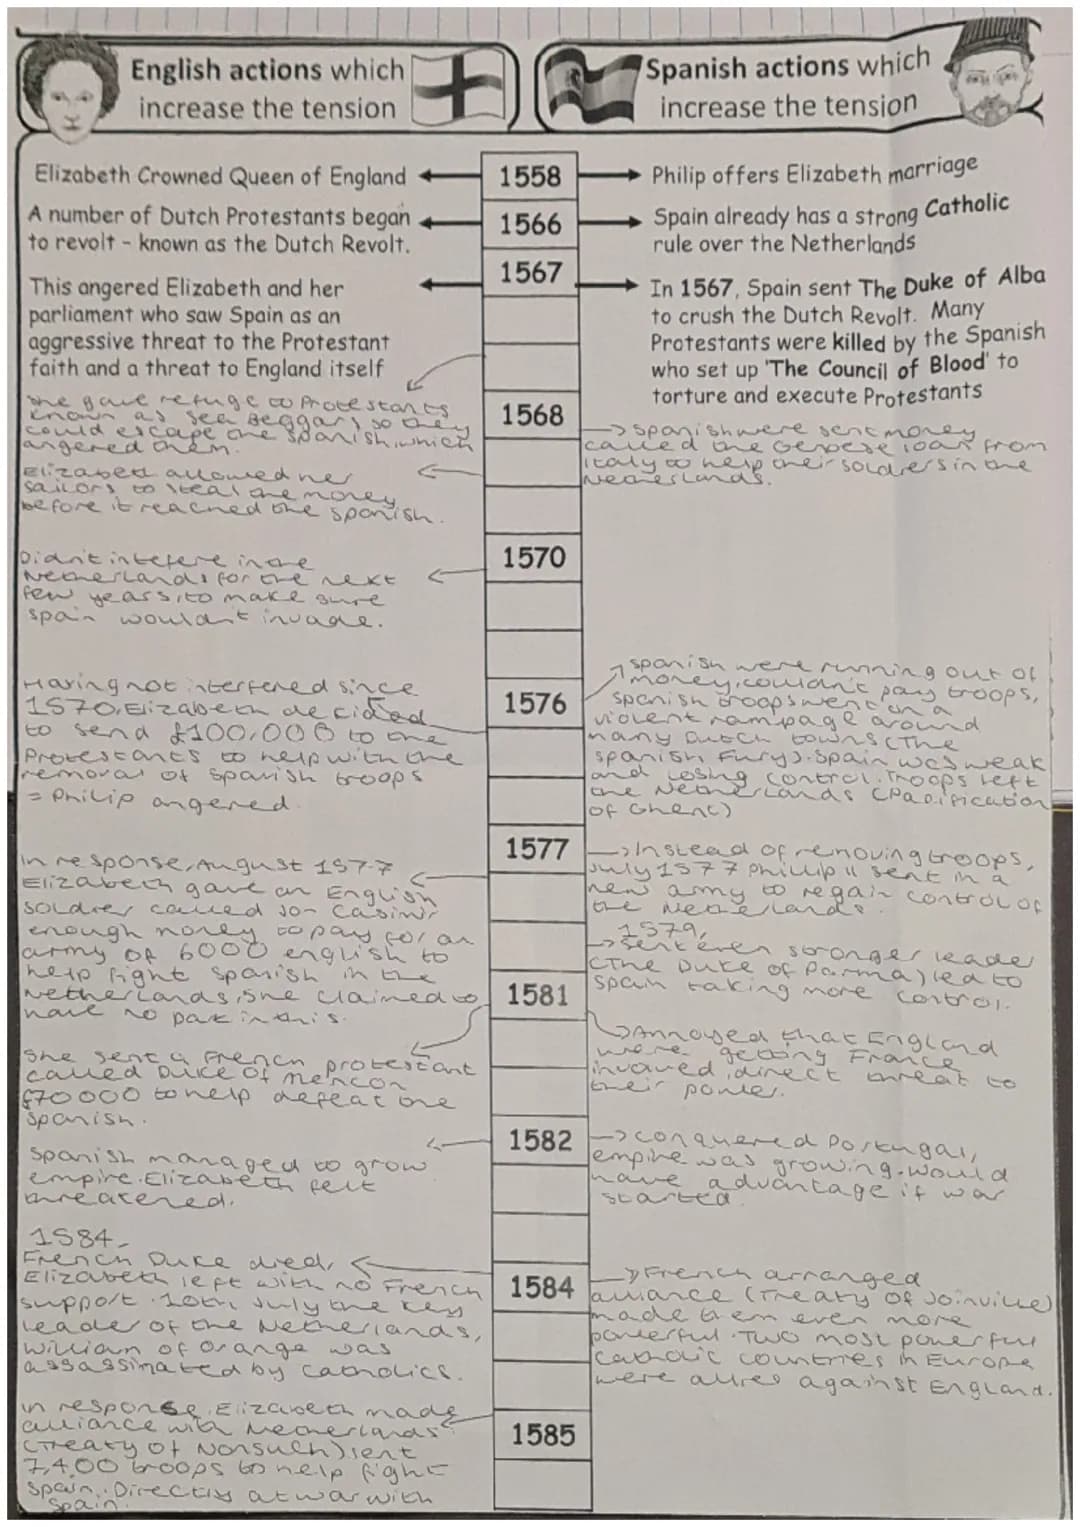 English actions which
increase the tension
Spanish actions which
increase the tension
Elizabeth Crowned Queen of England
1558
Philip offers Elizabeth marriage
A number of Dutch Protestants began
to revolt – known as the Dutch Revolt.
1566
Spain already has a strong Catholic
rule over the Netherlands
1567
This angered Elizabeth and her
parliament who saw Spain as an
aggressive threat to the Protestant
faith and a threat to England itself
In 1567, Spain sent The Duke of Alba
to crush the Dutch Revolt. Many
Protestants were killed by the Spanish
who set up 'The Council of Blood' to
torture and execute Protestants
She gave refuge to Protestants
known as Sea Beggars so they
could escape the Spanish, which
angered them.
Elizabeth allowed her
sailors to steal the money
before it reached the Spanish.
1568
→ Spanish were sent money
called the Genoese loan from
Italy to help their soldiers in the
Netherlands.
Didn't intefere in the
Netherlands for the next
few years, to make sure
Spain wouldn't invade.
1570
Having not interfered since
1570, Elizabeth decided
to send £100,000 to the
Protestants to help with the
removal of Spanish troops
= Philip angered.
1576
Spanish were running out of
money, couldn't pay troops,
Spanish troops went on a
violent rampage around
many Dutch towns (The
Spanish Fury). Spain was weak
and losing control. Troops left
the Netherlands (Pacification
of Ghent)
In response, August 1577
Elizabeth gave an English
soldier called Jon Casimir
enough money to pay for an
army of 6000 english to
help fight Spanish in the
Netherlands, she claimed to
have no part in this.
1577
→ Instead of removing troops,
July 1577 Phillip II sent in a
new army to regain control of
the Netherlands.
1579,
→ Sent even stronger leader
(The Duke of Parma) led to
Spain taking more control.
She sent a French protestant
called Duke of Alencon
£70000 to help defeat the
Spanish.
1581
→ Annoyed that England
were getting France
involved, direct threat to
their power.
Spanish managed to grow
empire. Elizabeth felt
threatened.
1582
→ conquered Portugal,
empire was growing. would
have advantage if war
started
1584-
French Duke died,
Elizabeth left with no French
support. 10th July the key
leader of the Netherlands,
William of Orange was
assassinated by Catholics.
1584
→ French arranged
alliance (Treaty of Joinville)
made them even more
powerful. Two most powerful
Catholic countries in Europe
were allies against England.
In response, Elizabeth made
alliance with Netherlands
(Treaty of Nonsuch) sent
7,400 troops to help fight
Spain. Directly at war with
Spain.
1585